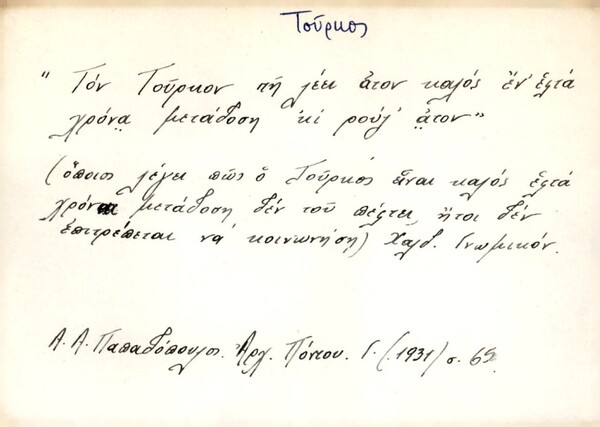 Τοῦρκος
"Τόν Τοῦρκον πῆ λέει ἄτον καλός ἔν' ἑφτά
χρόνᾳ μετάδοση κί ρούζ' ᾳτον"
(ὅποιος λέγει πῶς ὁ Τοῦρκός εἶναι καλός ἑφτά
χρόνια μετάδοση δέν τοῦ πέφτει, ἤτοι δέν
ἐπιτρέπεται νά κοινωνήση) Χαλδ. Γνωμικόν.
Α. Α. Παπαδόπουλος. Ἀρχ. Πόντου. Γ. (1931) σ. 65